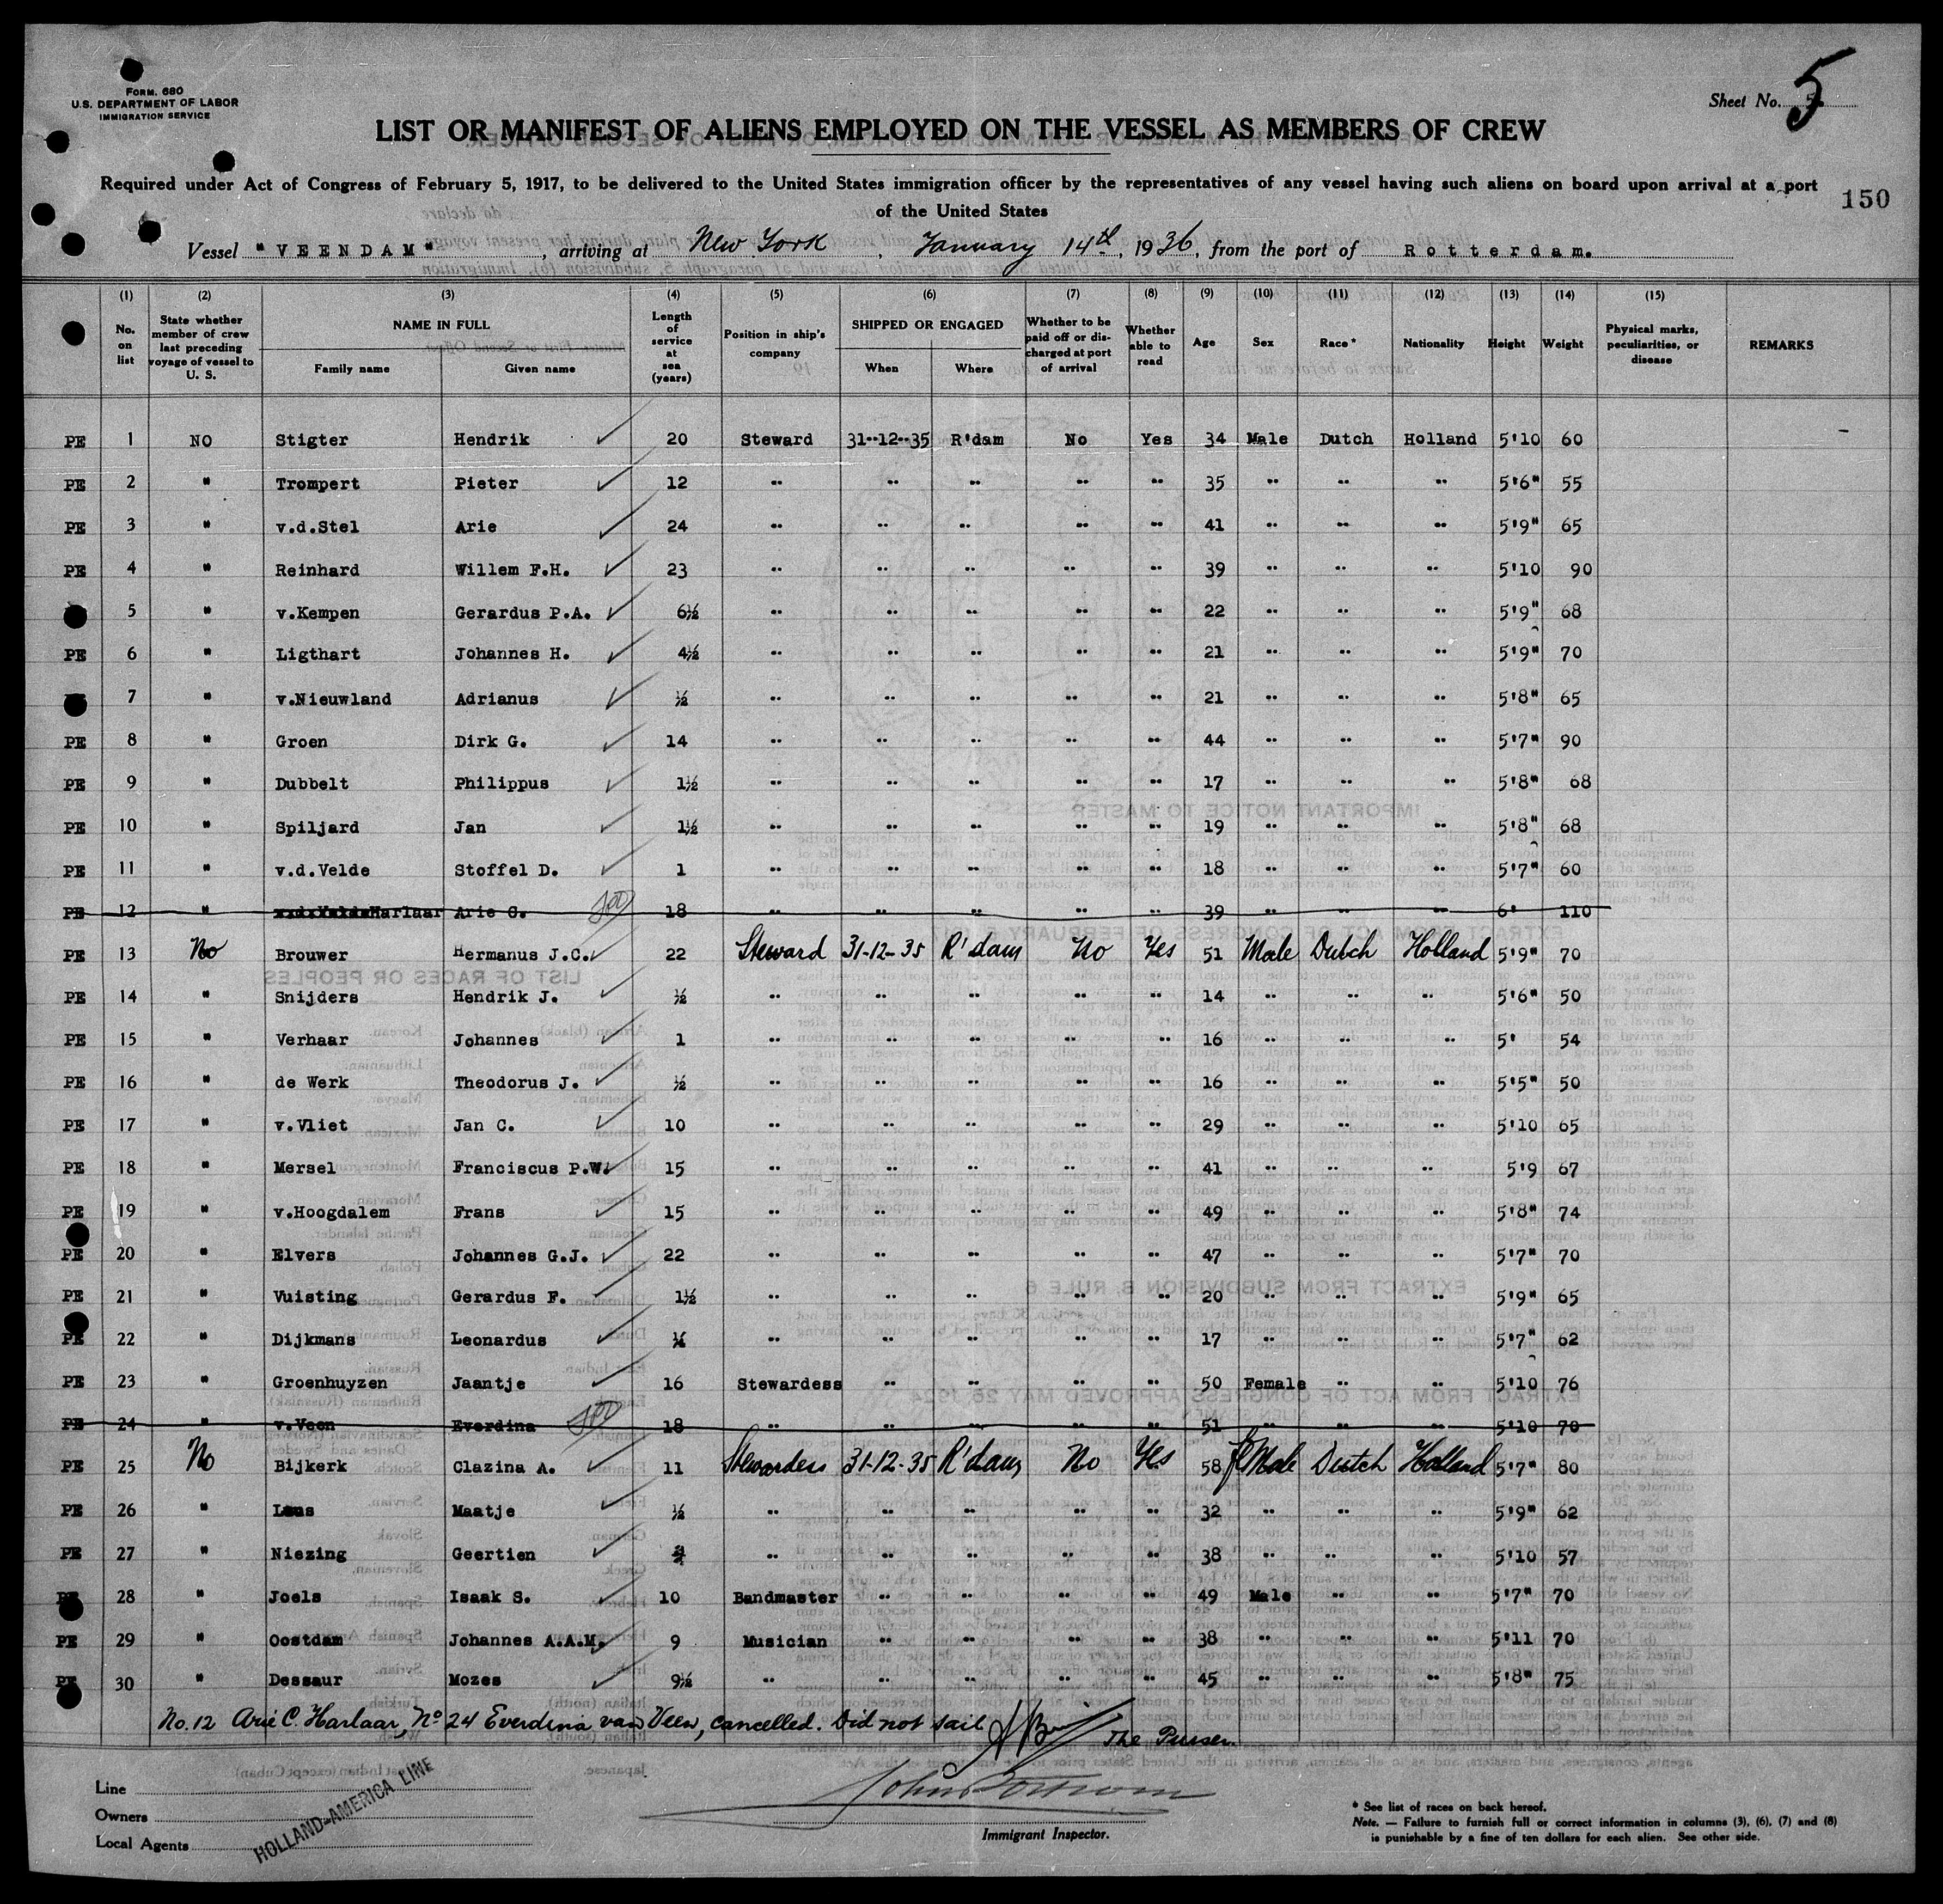 FORM. 680
U.S. DEPARTMENT OF LABOR
IMMIGRATION SERVICE
Sheet No. 5.
5
LIST OR MANIFEST OF ALIENS EMPLOYED ON THE VESSEL AS MEMBERS OF CREW
Required under Act of Congress of February 5, 1917, to be delivered to the United States immigration officer by the representatives of any vessel having such aliens on board upon arrival at a port
of the United States
150
Vessel "VEENDAM", arriving at New York, January 14th, 1936, from the port of Rotterdam.
(1) (2) (3) (4) (5) (6) (7) (8) (9) (10) (11) (12) (13) (14) (15)
No. on list State whether member of crew last preceding voyage of vessel to U. S. NAME IN FULL Family name Given name Length of service at sea (years) Position in ship's company SHIPPED OR ENGAGED When Where Whether to be paid off or discharged at port of arrival Whether able to read Age Sex Race* Nationality Height Weight Physical marks, peculiarities, or disease REMARKS
PE 1 NO Stigter Hendrik 20 Steward 31-12-35 R'dam No Yes 34 Male Dutch Holland 5'10 60
PE 2 " Trompert Pieter 12 " " " " " 35 " " " 5'6" 55
PE 3 " v.d.Stel Arie 24 " " " " " 41 " " " 5'9" 65
PE 4 " Reinhard Willem F.H. 23 " " " " " 39 " " " 5'10 90
5 " v.Kempen Gerardus P.A. 6½ " " " " " 22 " " " 5'9" 68
PE 6 " Ligthart Johannes H. 4½ " " " " " 21 " " " 5'9" 70
7 " v.Nieuwland Adrianus ½ " " " " " 21 " " " 5'8" 65
PE 8 " Groen Dirk G. 14 " " " " " 44 " " " 5'7" 90
PE 9 " Dubbelt Philippus 1½ " " " " " 17 " " " 5'8" 68
PE 10 " Spiljard Jan 1½ " " " " " 19 " " " 5'8" 68
PE 11 " v.d.Velde Stoffel D. 1 " " " " " 18 " " " 5'7" 60
PE 12 " Harlaar Arie C. 18 " " " " " 39 " " " 6' 110
PE 13 No Brouwer Hermanus J.C. 22 Steward 31-12-35 R'dam No Yes 51 Male Dutch Holland 5'9" 70
PE 14 " Snijders Hendrik J. ½ " " " " " 14 " " " 5'6" 50
PE 15 " Verhaar Johannes 1 " " " " " 16 " " " 5' 54
PE 16 " de Werk Theodorus J. ½ " " " " " 16 " " " 5'5" 50
PE 17 " v.Vliet Jan C. 10 " " " " " 29 " " " 5'10 65
PE 18 " Mersel Franciscus P.W. 15 " " " " " 41 " " " 5'9 67
PE 19 " v.Hoogdalem Frans 15 " " " " " 49 " " " 5'8" 74
PE 20 " Elvers Johannes G.J. 22 " " " " " 47 " " " 5'7" 70
PE 21 " Vuisting Gerardus F. 1½ " " " " " 20 " " " 5'9" 65
PE 22 " Dijkmans Leonardus " " " " " 17 " " " 5'7" 62
PE 23 " Groenhuyzen Jaantje 16 Stewardess " " " " 50 Female " " 5'10 76
PE 24 " v.Veen Everdina 18 " " " " " 51 " " " 5'10 70
PE 25 No Bijkerk Clazina A. 11 Stewardess 31-12-35 R'dam No Yes 58 feMale Dutch Holland 5'7" 80
PE 26 " Maatje ½ " " " " " 32 " " " 5'9" 62
PE 27 " Niezing Geertien " " " " " 38 " " " 5'10 57
PE 28 " Joels Isaak S. 10 Bandmaster " " " " 49 Male " " 5'7" 70
PE 29 " Oostdam Johannes A.A.M. 9 Musician " " " " 38 " " " 5'11 70
PE 30 " Dessaur Mozes 9½ " " " " " 45 " " " 5'8" 75
No. 12 Arie C. Harlaar, No 24 Everdina van Veen, cancelled. Did not sail The Purser.
Line
Owners
Local Agents
HOLLAND-AMERICA LINE
Immigrant Inspector.
* See list of races on back hereof.
Note. — Failure to furnish full or correct information in columns (3), (6), (7) and (8)
is punishable by a fine of ten dollars for each alien. See other side.